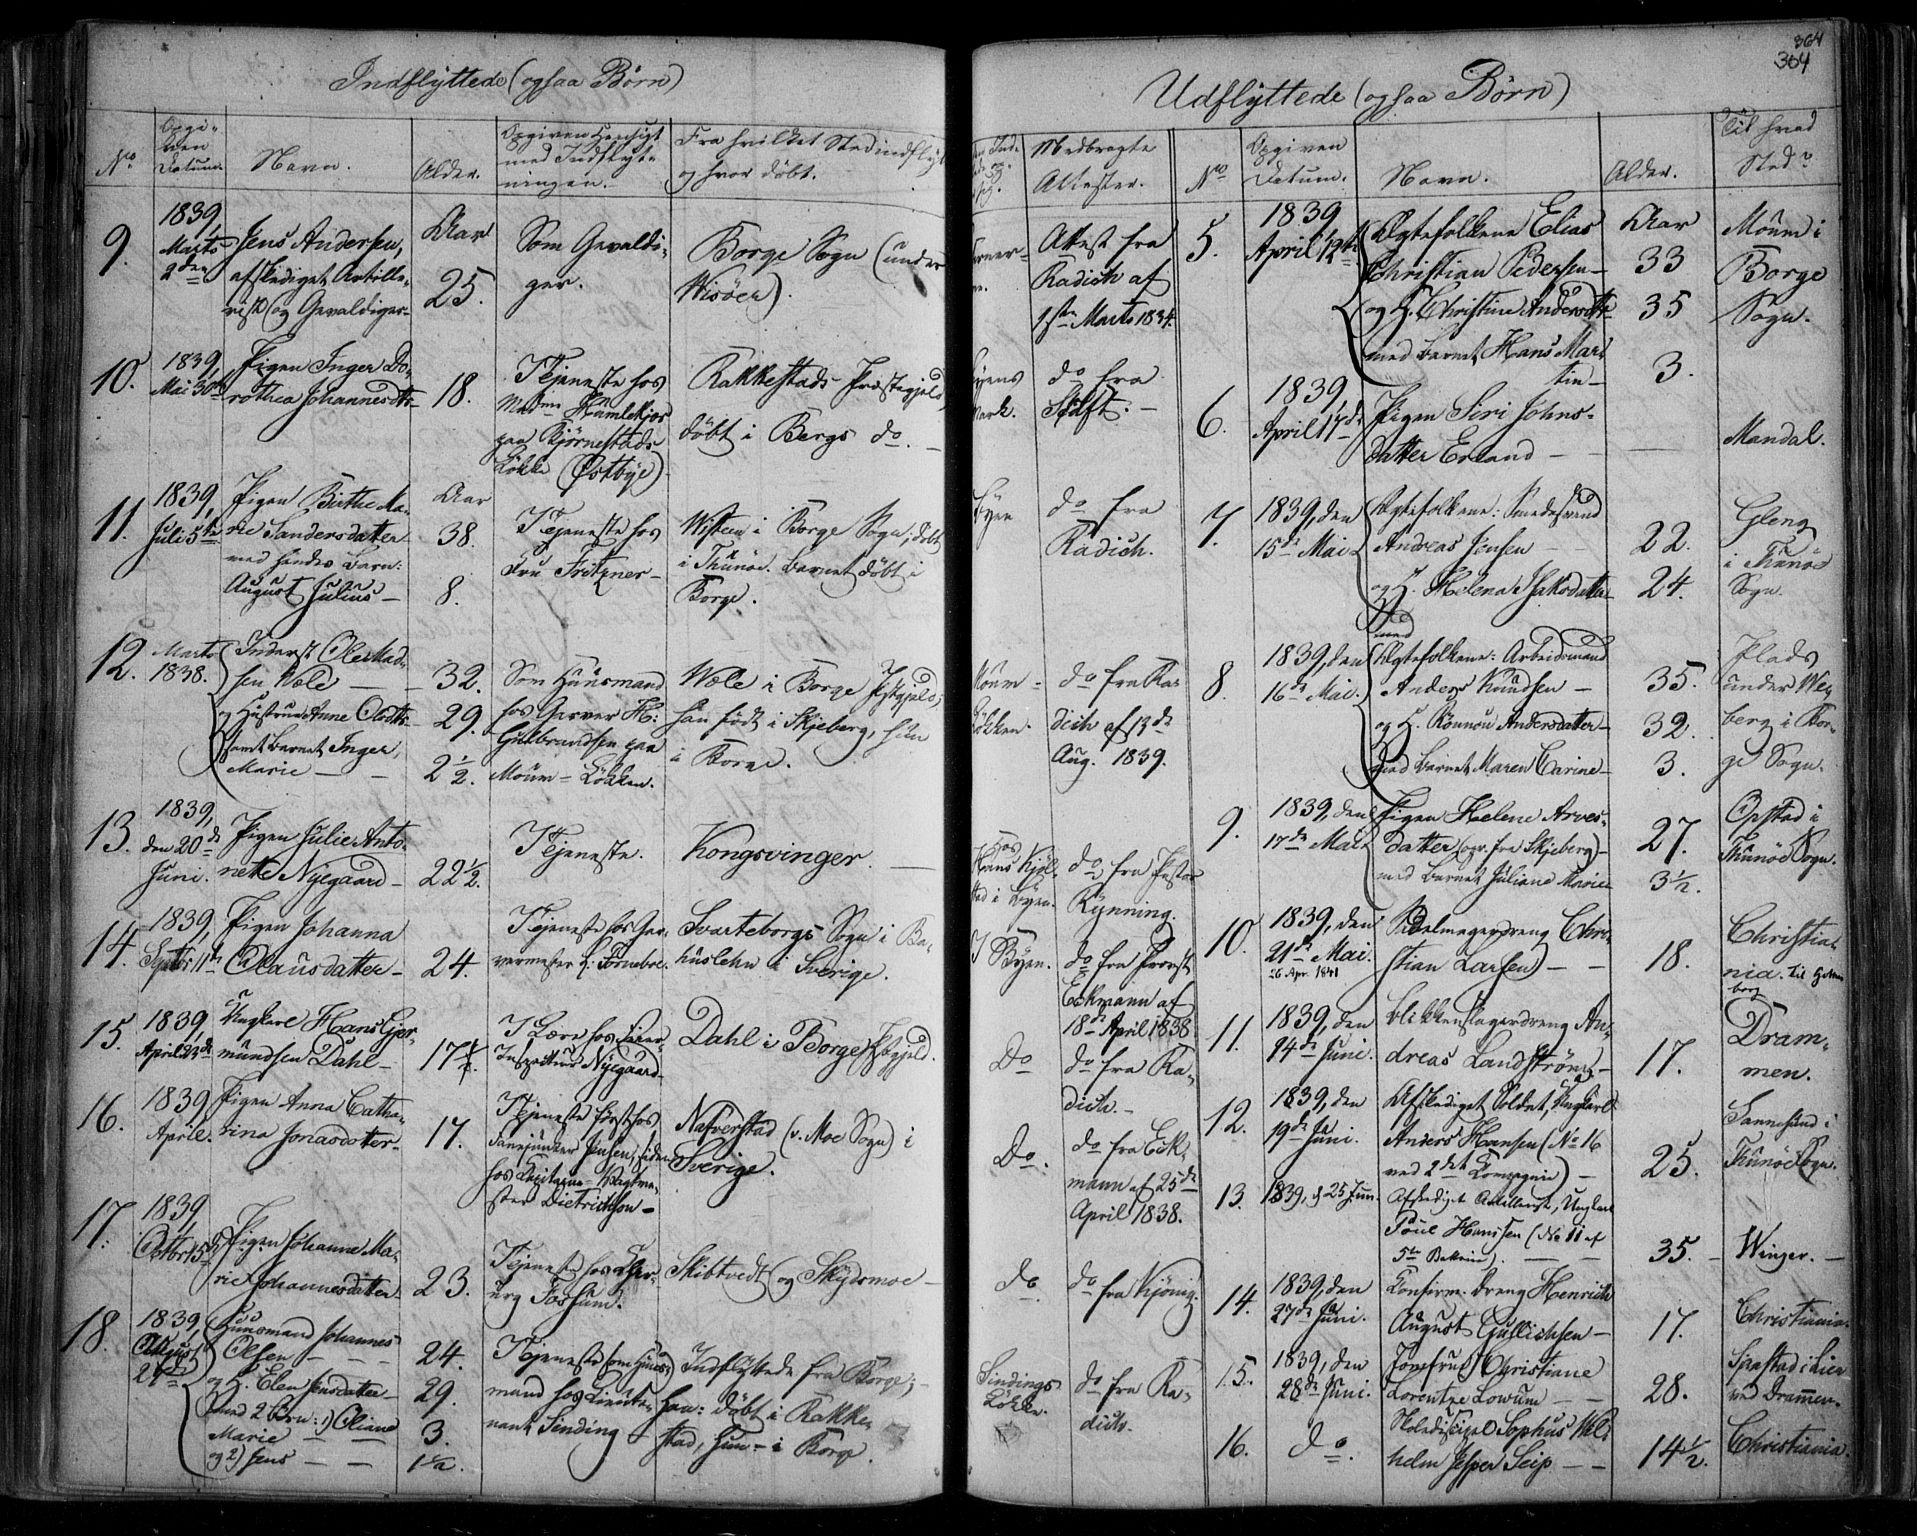 Indflyttede (ogsaa Børn)
No.
Opgiven Datum.
Navn.
Alder.
Opgiven Hensigt
med Indflyt-
ningen.
Fra hvilket Sted indflyt
og hvor døbt.
9.
1839,
Marts
2den
Jens Andersen,
afskediget Artille-
rist (og Gevaldiger-
Aar
25.
Som Gevaldi-
ger.
Borge Sogn (under
Wisøen).
10.
1839,
Mai 30te
Pigen Inger Do-
rothea Johannesdtr
18.
I Tjeneste hos
paa Bjørnestads
Løkke (Østbye)
Rakkestads Præstegjeld,
døbt i Bergs do. -
11.
1839,
Juli 5te
Pigen Birthe Ma-
rie Sandersdatter
med hendes Barn:
August Julius -
Aar
38.
8.
I Tjeneste hos
Fru Fritzner -
Wisteen i Borge Sogn; døbt
i Thunøe. Barnet døbt i
Borge.
12.
Marts
1838.
Inderst Ole Mad-
sen Wæle
og Hustrue Anne Olsdtr
samt Barnet Inger
Marie -
32.
29.
2 1/2.
Som Huusmand
hos Garver H:
Gulbrandsen paa
Moum-Løkken.
Wæle i Borge Pstgjeld;
han født i Skjeberg, hun
i Borge.
13.
1839,
den 20de
Juni.
Pigen Julie Anto-
nette Nyegaard -
22 1/2.
I Tjeneste.
Kongsvinger
14.
1839,
Septbr 11te
Pigen Johanna
Clausdatter -
24.
I Tjeneste hos Gar-
vermester H: Tornebre.
Svarteborgs Sogn i Ba-
huslehn i Sverige.
15.
1839,
April 23de
Ungkarl Hans Gjer-
mundsen Dahl -
17
I Lære hos
Inspecteur Nyegaard
Dahl i Borge Pstgjeld.
16.
1839,
April.
Pigen Anna Catha-
rina Jonasdotter -
17.
I Tjeneste først hos
Jensen, siden
hos Capitaine Vagtme-
ster Dietrichson -
Nafverstad (v. Moe Sogn) i
Sverige.
17.
1839
Octbr 15de
Pigen Johanne Ma-
rie Johannesdatter
23.
I Tjeneste hos
Fossum.
Skibtvedt (og Skydsmoe -
18.
1839,
August
27de
Huusmand Johannes
Olsen -
og H. Elen Jensdatter
med 2 Børn: 1) Oliane
Marie
og 2) Jens -
24.
29.
3.
1 1/2.
I Tjeneste (som Huus-
mand hos Lieute-
nant Sinding -
Indflyttede fra Borge; -
Han: døbt i Rakke-
stad, hun - i Borge.
364
304
Udflyttede (ogsaa Børn)
Medbragte
Attester.
No
Opgiven
Datum.
Navn.
Alder.
Til hvad
Sted?
Attest fra
Radich af
1ste Marts 1834.
do fra
Sylft. -
do fra
Radich.
Moum-
Løkken.
do fra Ra-
dich af 13de
Aug. 1839.
hos
i Byen.
do fra Pastor
Rynning.
I Byen.
do fra Provst
Eckmann af
18de April 1838
Do
do fra Ra-
dich. -
Do.
do fra Eck-
mann af 25de
April 1838.
do
do fra Kjønig.
Sindings
Løkke.
do fra Ra-
dich.
5.
1839
April 12te
Ægtefolkene Elias
Christian Pedersen -
og H. Christine Andersdtr
med Barnet Hans Mar-
tin -
Aar
33
35
3.
Moum i
Borge
Sogn.
6.
1839,
April 17de
Pigen Siri Johns-
datter Erland -
Mandal.
7.
1839, den
15de Mai
Ægtefolkene: Smedesvend
Andreas Jensen -
og H. Helena
22.
24.
Gleng
i Thunøe
Sogn.
8.
1839, den
16de Mai.
med
Ægtefolkene: Arbeidsmand
Anders Knudsen -
og H. Rønnou Andersdatter -
med Barnet Maren Carine -
35.
32.
3.
Plads
under We-
berg i Bor-
ge Sogn.
9.
1839, den
17de Mai
Pigen Helene Arves-
datter (opr. fra Skjeberg) -
med Barnet Juliane Marie -
27.
3 1/2.
Opstad i
Thunøe Sogn.
10.
1839, den
21de Mai.
26 Apr. 1841
Sadelmagerdreng Chri-
stian Larsen) -
18.
Christia-
nia. til Gothen
borg
11.
1839, den
14de Juni.
Blikkenslagerdreng An-
dreas Landstrøm -
17.
Dram-
men.
12.
1839, den
19de Juni.
Afskediget Soldat, Ungkarl
Anders Hansen (No 16
ved 2det Compagnie) -
25.
Sannesund i
Thunøe Sogn.
13.
1839, d 25 Juni.
Afskediget Artillerist, Ungkarl
Poul Hanssen (No 11 af
5te Batterie) -
35. -
Winger. -
14.
1839, den
27de Juni.
Confirm. Dreng Henrich
August Gullichsen -
17.
Christiania.
15.
1839, den
28de Juni.
Jomfrue Christiane
Lorentze Lowum -
28.
i Lier
ved Drammen.
16.
do.
Skoledisipel Sophus Wil-
helm Jesper Seip -
14 1/2.
Christiania.